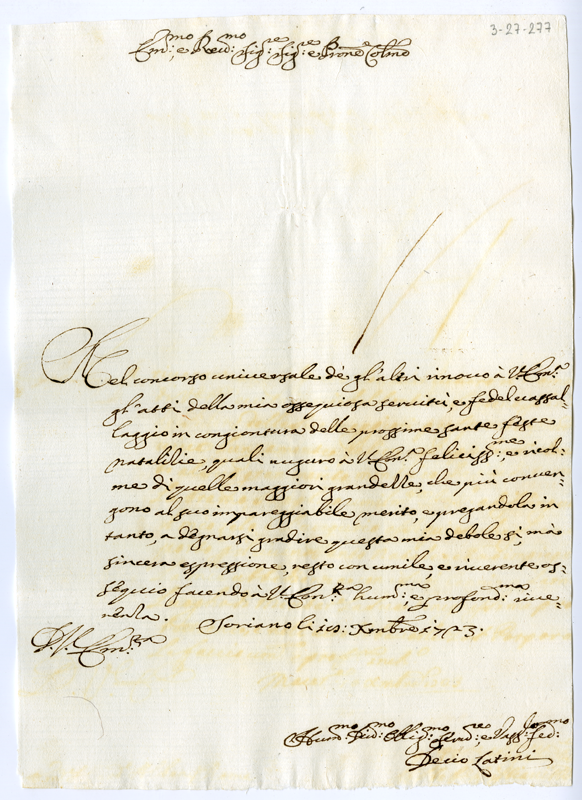 3-27-277
Em:mo e Rev:mo Sig:re Sig:re e Prone Colmo
Nel concorso universale de gl'altri inovo à V. Em:a
gl'atti della mia ossequiosa servitù, e fedel vassal=
laggio in congiontura delle prossime sante feste
natalitie, quali auguro à V. Em:a feliciss:me, e ricol=
me di quelle maggiori grandezze, che più conven=
gono al suo impareggiabile merito, e pregandola in
tanto, a degnarsi gradire questa mia debole sì, mà
sincera espressione, resto con umile, e riverente os=
sequio facendo à V. Em:za hum:ma, e profond:ma rive=
renza.
Soriano li Xmbre 1723.
D. V. Em:za
Hum:mo Dev:mo Oblig:mo Serv:re, e Vass:lo fed:mo
Decio Latini